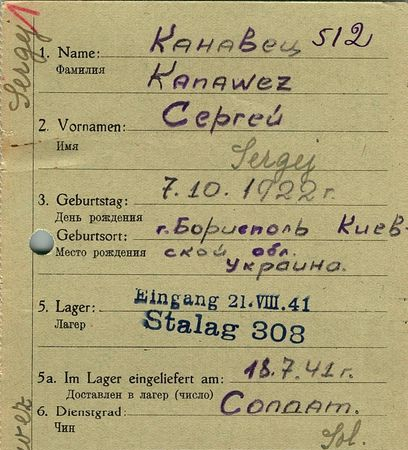 1. Name: Канавец 512
Фамилия Kanawez
2. Vornamen: Сергей
Имя Sergej
3. Geburtstag: 7.10.1922 г.
День рождения
Geburtsort: г. Борисполь Киев-
Место рождения ской обл.
Украина.
5. Lager: Eingang 21.VIII.41
Лагер Stalag 308
5a. Im Lager eingeliefert am: 18.7.41 г.
Доставлен в лагер (число)
6. Dienstgrad: Солдат.
Чин Sol.
Sergej